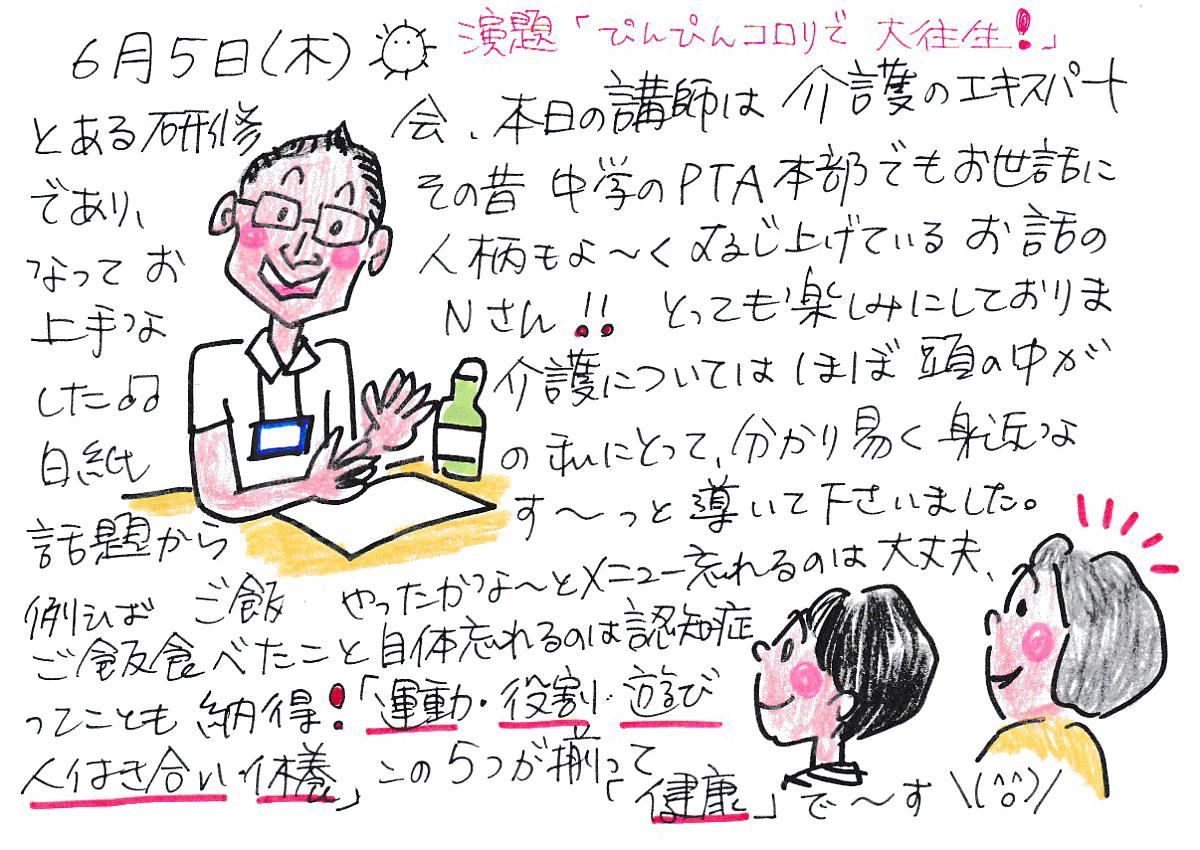 6月5日(木) 演題「ぴんぴんコロリで 大往生!」
とある研修会、本日の講師は 介護のエキスパート
であり、その昔 中学のPTA本部でもお世話に
なって お人柄もよ〜く 存じ上げている お話の
上手な Nさん!! とっても楽しみにしておりま
した♫ 介護については ほぼ 頭の中が
白紙の 私にとって、分かり易く 身近な
話題から す〜っと導いて下さいました。
例えば ご飯 やったかな〜とメニュー忘れるのは大丈夫、
ご飯食べたこと自体忘れるのは認知症
ってことも 納得!「運動・役割・遊び
人付き合い・休養」この5つが揃って
「健康」で〜す \(^o^)/